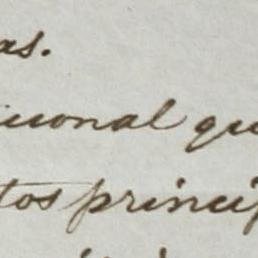 as.
cional qu
tos princip